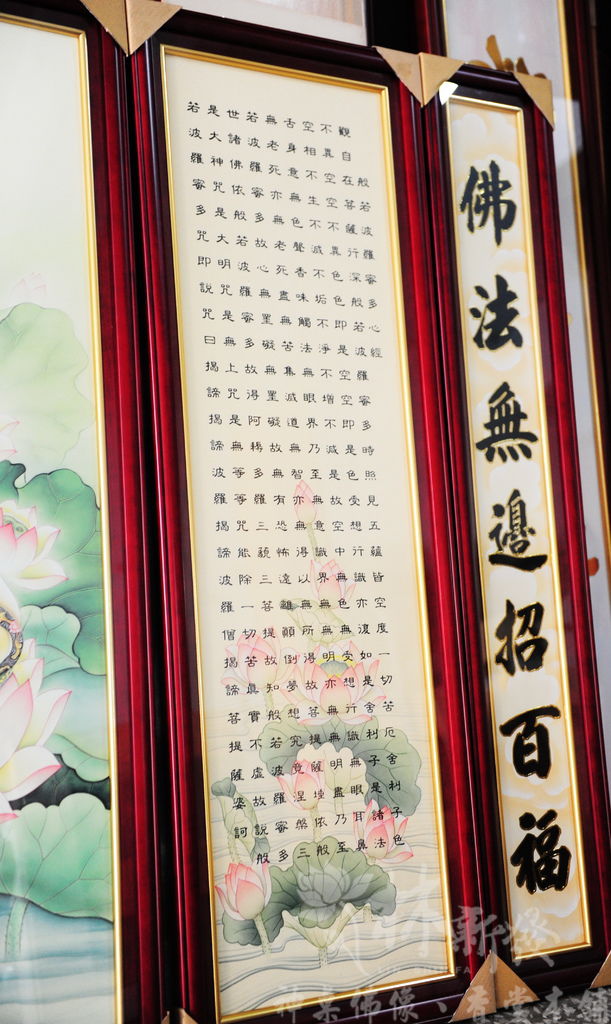 佛法無邊招百福
般若波羅蜜多心經
觀自在菩薩行深般若波羅蜜多時照見五蘊皆空度一切苦厄舍利子色
不異空空不異色色即是空空即是色受想行識亦復如是舍利子是諸法
空相不生不滅不垢不淨不增不減是故空中無色無受想行識無眼耳鼻
舌身意無色聲香味觸法無眼界乃至無意識界無無明亦無無明盡乃至
無老死亦無老死盡無苦集滅道無智亦無得以無所得故菩提薩埵依般
若波羅蜜多故心無罣礙無罣礙故無有恐怖遠離顛倒夢想究竟涅槃三
世諸佛依般若波羅蜜多故得阿耨多羅三藐三菩提故知般若波羅蜜多
是大神咒是大明咒是無上咒是無等等咒能除一切苦真實不虛故說般
若波羅蜜多咒即說咒曰揭諦揭諦波羅揭諦波羅僧揭諦菩提薩婆訶
新燦
神桌佛像、香堂本舖